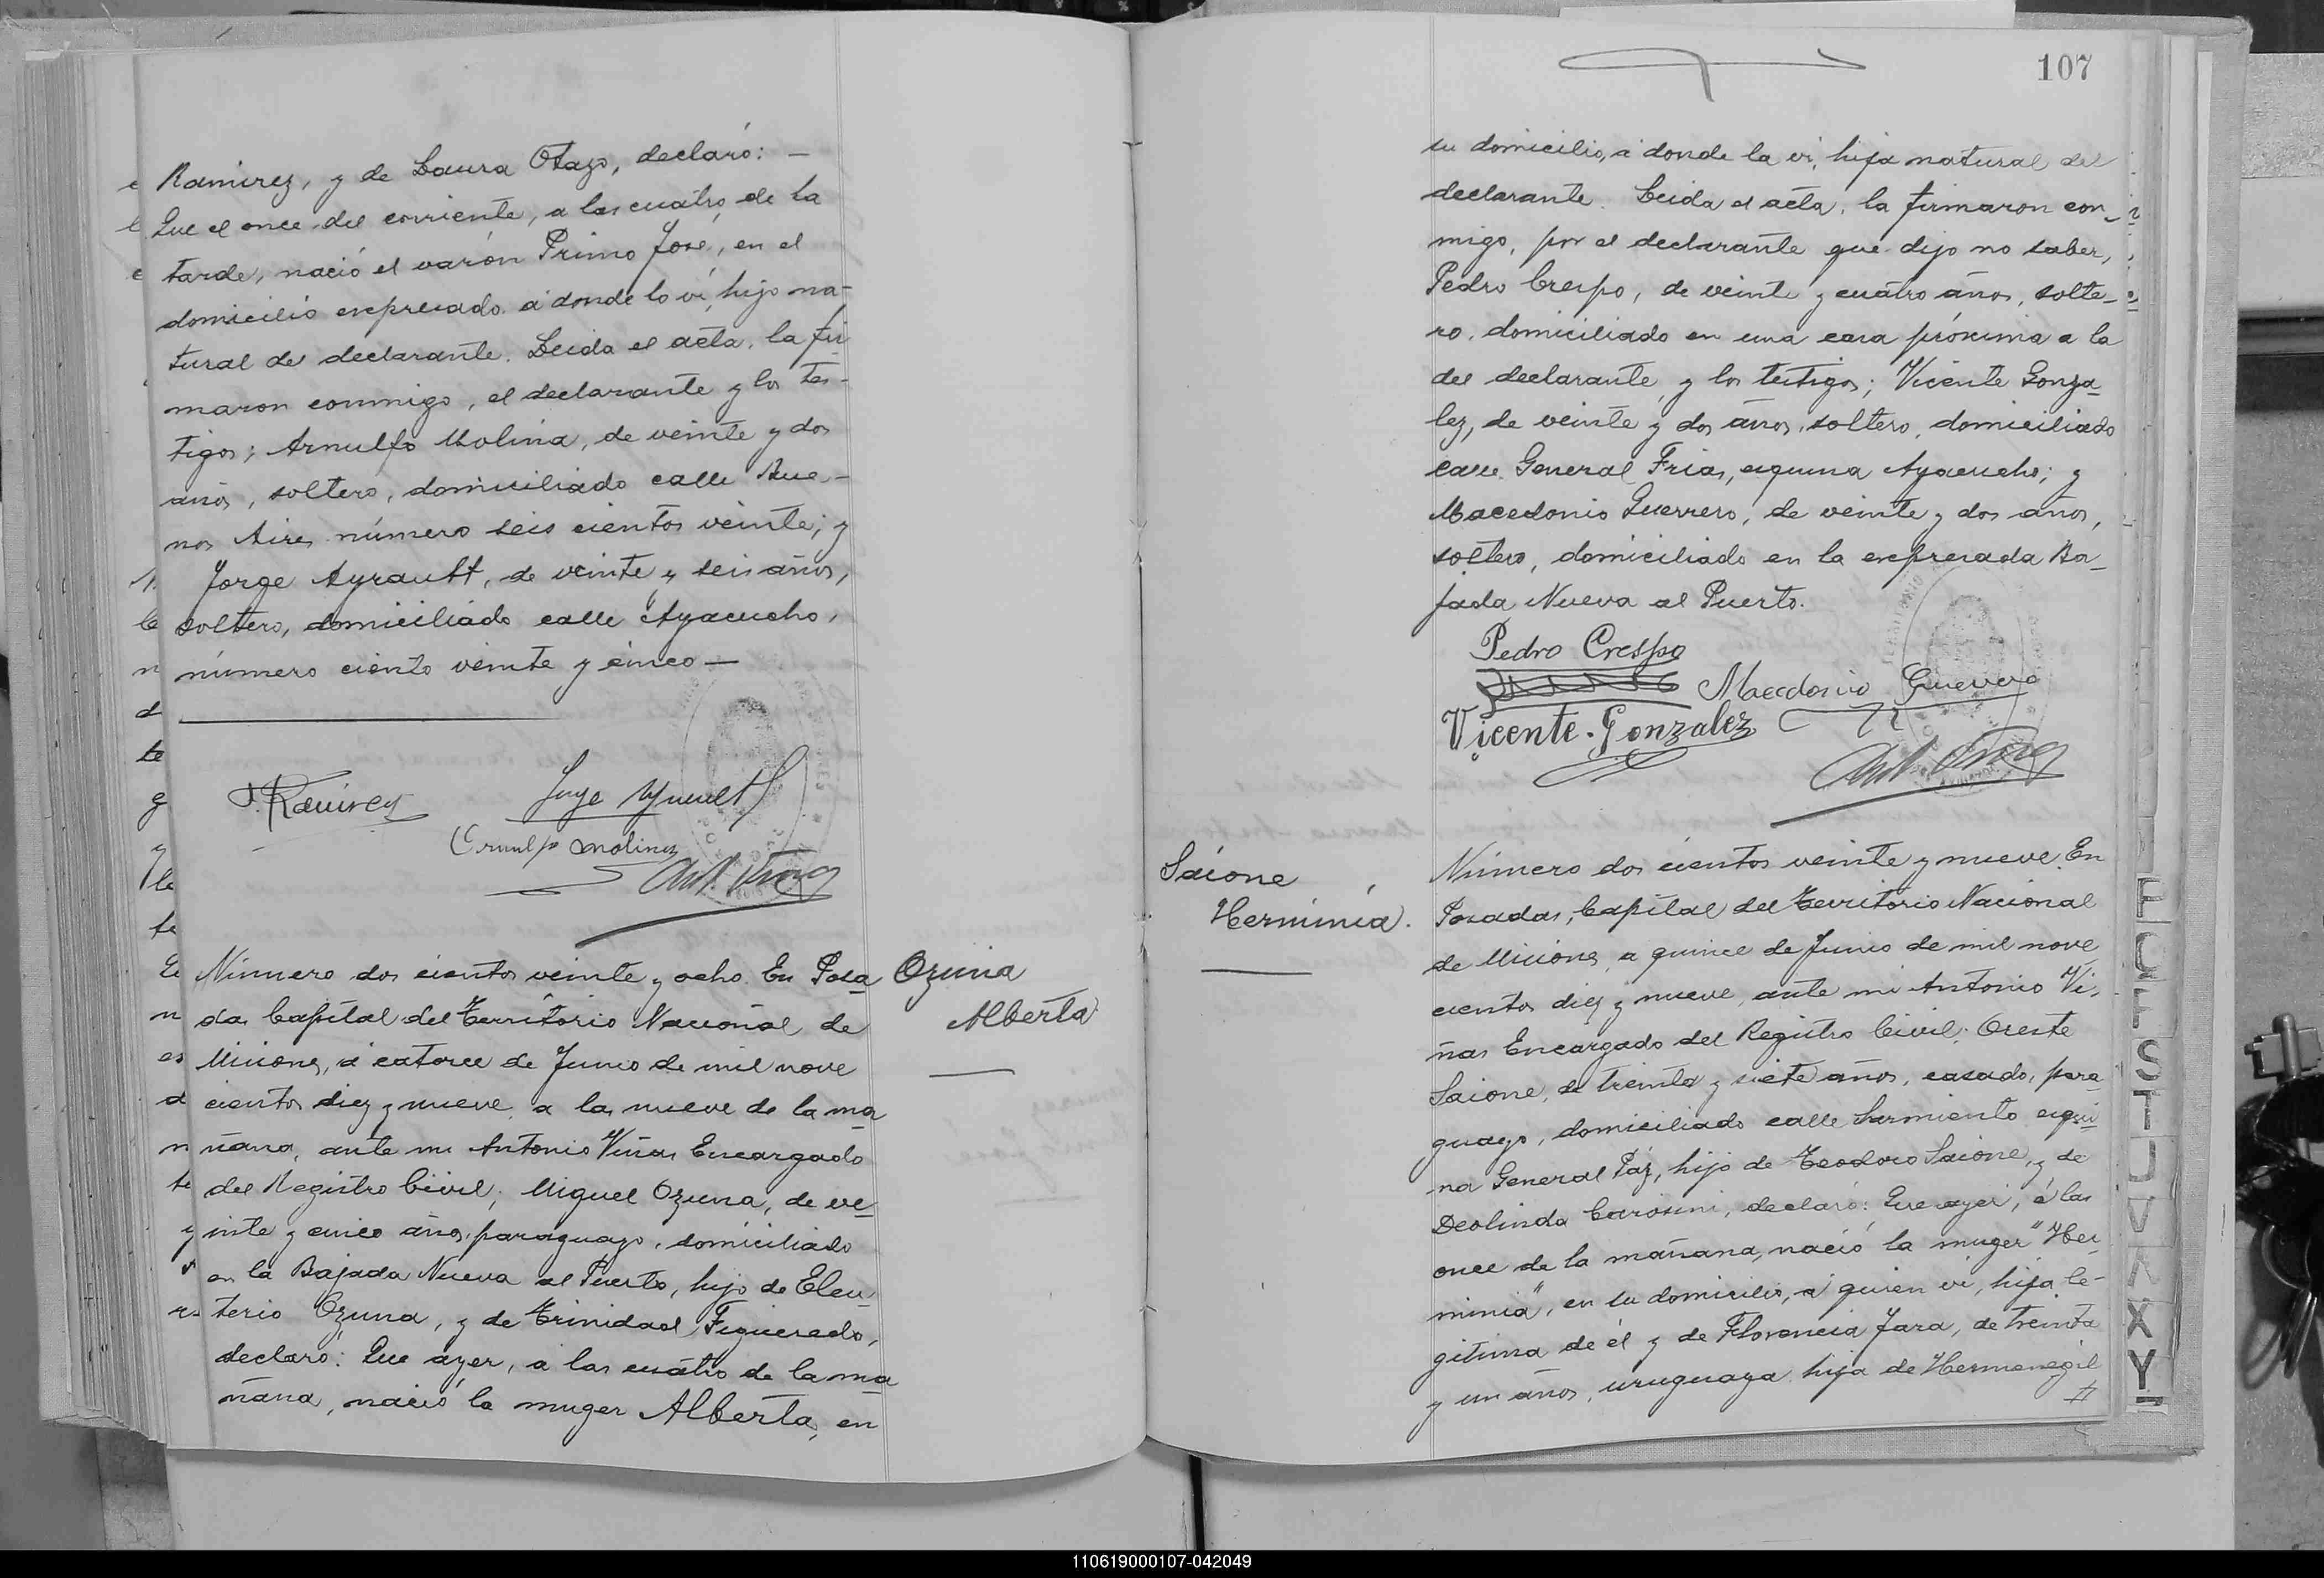 Ramirez, y de Laura Otazo, declaró: —
Que el once del corriente, a las cuatro de la
tarde, nació el varón Primo José, en el
domicilio expresado a donde lo vi, hijo na-
tural de declarante. Leida el acta, la fir
maron conmigo, el declarante y los tes-
tigos; Arnulfo Molina, de veinte y dos
años, soltero, domiciliado calle Bue-
nos Aires número seis cientos veinte; y
Jorge Ayrault, de veinte y seis años,
soltero, domiciliado calle Ayacucho,
número ciento veinte y cinco —
J. Ramirez
Jorge Ayrault
Arnulfo Molina
Ant. Viñas
Ozuna
Alberta
Número dos cientos veinte y ocho. En Posa
das Capital del Territorio Nacional de
Misiones, á catorce de Junio de mil nove
cientos diez y nueve, a las nueve de la ma
ñana, ante mi Antonio Viñas Encargado
del Registro Civil; Miguel Ozuna, de ve
inte y cinco años, paraguayo, domiciliado
en la Bajada Nueva al Puerto, hijo de Eleu
terio Ozuna, y de Trinidad Figueredo,
declaró: Que ayer, a las cuatro de la ma
ñana, nació la muger Alberta, en
107
su domicilio, a donde la vi, hija natural del
declarante. Leida el acta, la firmaron con-
migo, por el declarante que dijo no saber,
Pedro Crespo, de veinte y cuatro años, solte-
ro, domiciliado en una casa próxima a la
del declarante, y los testigos; Vicente Gonza
lez, de veinte y dos años, soltero, domiciliado
calle General Frias, esquina Ayacucho; y
Macedonio Guerrero, de veinte y dos años,
soltero, domiciliado en la expresada Ba-
jada Nueva al Puerto.
Pedro Crespo
Macedonio Guerrero
Vicente Gonzalez
Ant. Viñas
Saione
Herminia.
Número dos cientos veinte y nueve. En
Posadas, Capital del Territorio Nacional
de Misiones, a quince de Junio de mil nove
cientos diez y nueve, ante mi Antonio Vi,
ñas Encargado del Registro Civil; Oreste
Saione, de treinta y siete años, casado, para
guayo, domiciliado calle Sarmiento esqui
na General Páz, hijo de Teodoro Saione, y de
Deolinda Carosini, declaró: Que ayer, á las
once de la mañana, nació la muger "Her
minia", en su domicilio, á quien vi, hija le-
gitima de él y de Florencia Jara, de treinta
y un años, uruguaya hija de Hermenegil
F
Q
F
S
T
U
V
X
Y
110619000107-042049